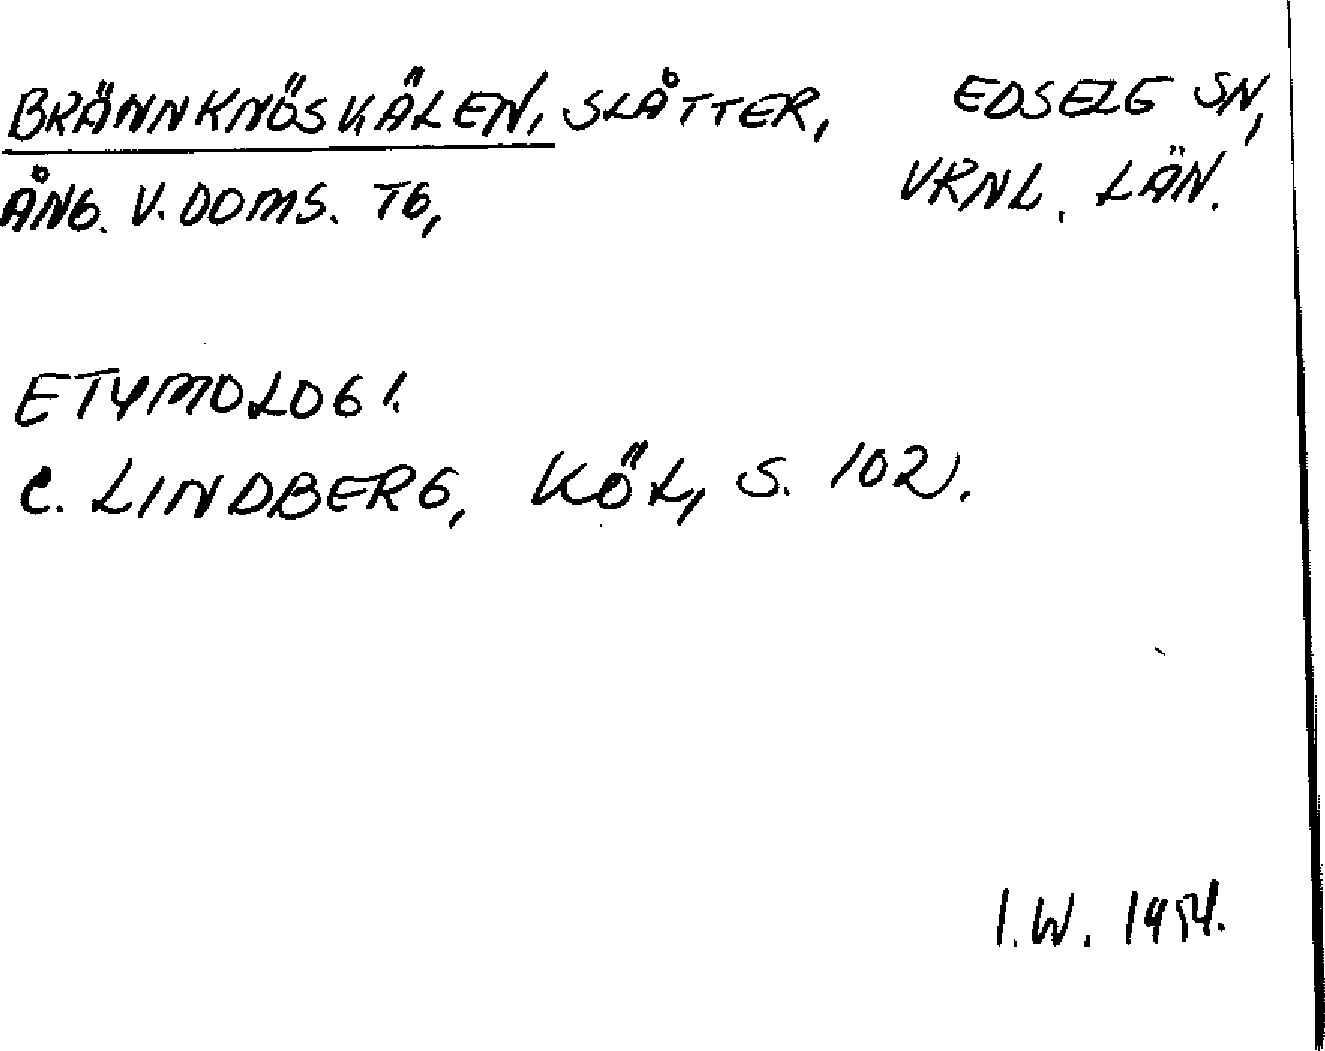 BRÄNNKNÖSKÄLEN, SLÅTTER, EDSELE SN,
ÅNG. V. DOMS. TG, VRNL. LÄN.
ETYMOLOGI.
C. LINDBERG, KÖL, S. 102.
I.W. 1954.